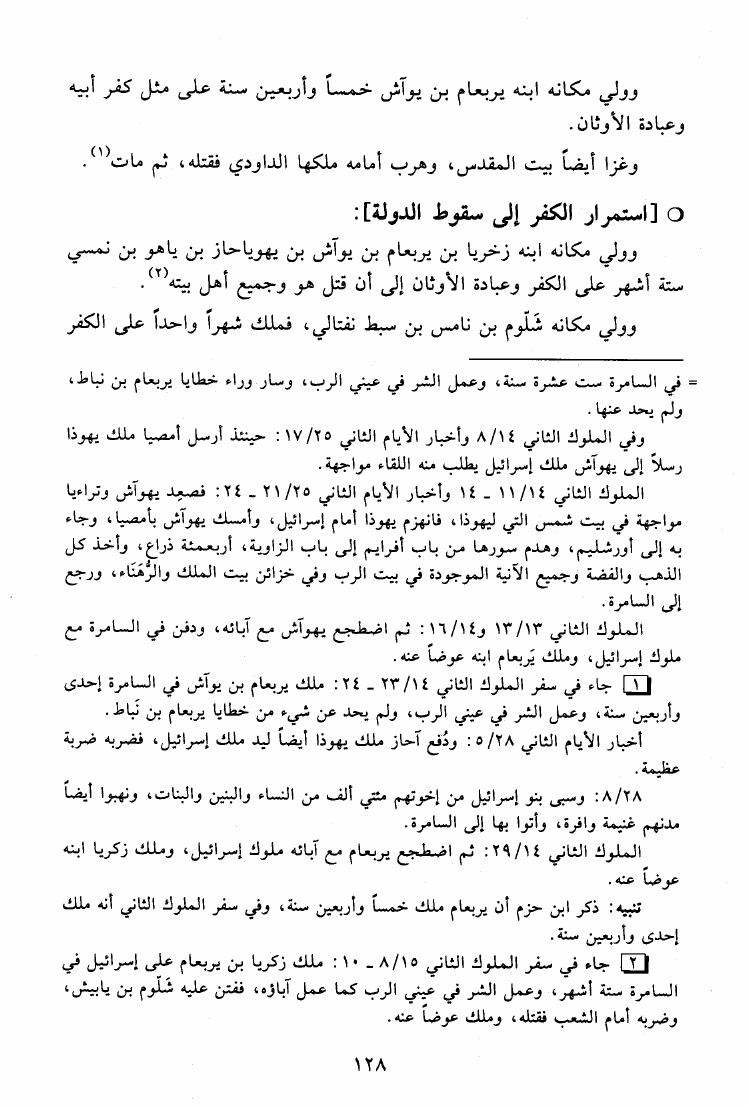 وولي مكانه ابنه يربعام بن يوآش خمساً وأربعين سنة على مثل كفر أبيه
وعبادة الأوثان.
وغزا أيضاً بيت المقدس، وهرب أمامه ملكها الداودي فقتله، ثم مات(١).
○ [استمرار الكفر إلى سقوط الدولة]:
وولي مكانه ابنه زخريا بن يربعام بن يوآش بن يهوياحاز بن ياهو بن نمسي
ستة أشهر على الكفر وعبادة الأوثان إلى أن قتل هو وجميع أهل بيته(٢).
وولي مكانه شَلّوم بن نامس بن سبط نفتالي، فملك شهراً واحداً على الكفر
= في السامرة ست عشرة سنة، وعمل الشر في عيني الرب، وسار وراء خطايا يربعام بن نباط،
ولم يحد عنها.
وفي الملوك الثاني ٨/١٤ وأخبار الأيام الثاني ١٧/٢٥: حينئذ أرسل أمصيا ملك يهوذا
رسلاً إلى يهوآش ملك إسرائيل يطلب منه اللقاء مواجهة.
الملوك الثاني ١١/١٤ ـ ١٤ وأخبار الأيام الثاني ٢١/٢٥ ـ ٢٤: فصعِد يهوآش وتراءيا
مواجهة في بيت شمس التي ليهوذا، فانهزم يهوذا أمام إسرائيل، وأمسك يهوآش بأمصيا، وجاء
به إلى أورشليم، وهدم سورها من باب أفرايم إلى باب الزاوية، أربعمئة ذراع، وأخذ كل
الذهب والفضة وجميع الآنية الموجودة في بيت الرب وفي خزائن بيت الملك والرُّهَنَاء، ورجع
إلى السامرة.
الملوك الثاني ١٣/١٣ و١٦/١٤: ثم اضطجع يهوآش مع آبائه، ودفن في السامرة مع
ملوك إسرائيل، وملك يَربعام ابنه عوضاً عنه.
[١] جاء في سفر الملوك الثاني ٢٣/١٤ ـ ٢٤: ملك يربعام بن يوآش في السامرة إحدى
وأربعين سنة، وعمل الشر في عيني الرب، ولم يحد عن شيء من خطايا يربعام بن نَباط.
أخبار الأيام الثاني ٥/٢٨: ودُفع آحاز ملك يهوذا أيضاً ليد ملك إسرائيل، فضربه ضربة
عظيمة.
٨/٢٨: وسبى بنو إسرائيل من إخوتهم مئتي ألف من النساء والبنين والبنات، ونهبوا أيضاً
مدنهم غنيمة وافرة، وأتوا بها إلى السامرة.
الملوك الثاني ٢٩/١٤: ثم اضطجع يربعام مع آبائه ملوك إسرائيل، وملك زكريا ابنه
عوضاً عنه.
تنبيه: ذكر ابن حزم أن يربعام ملك خمساً وأربعين سنة، وفي سفر الملوك الثاني أنه ملك
إحدى وأربعين سنة.
[٢] جاء في سفر الملوك الثاني ٨/١٥ ـ ١٠: ملك زكريا بن يربعام على إسرائيل في
السامرة ستة أشهر، وعمل الشر في عيني الرب كما عمل آباؤه، ففتن عليه شَلّوم بن يابيش،
وضربه أمام الشعب فقتله، وملك عوضاً عنه.
١٢٨